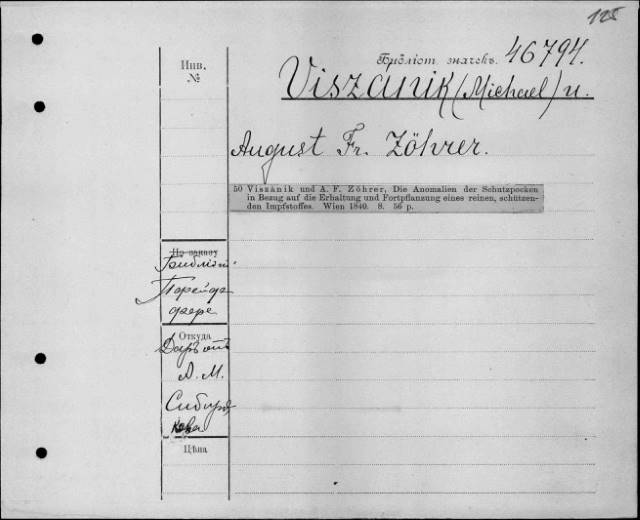 125
Бібліот. значекъ. 46794.
Инв.
№
Viszánik (Michael) u.
August Fr. Zöhrer.
50 Viszánik und A. F. Zöhrer, Die Anomalien der Schutzpocken
in Bezug auf die Erhaltung und Fortpflanzung eines reinen, schützen-
den Impfstoffes. Wien 1840. 8. 56 p.
По заказу
Библіот.
Откуда
Даръ отъ
А. М.
Сибиря
кова
Цѣна